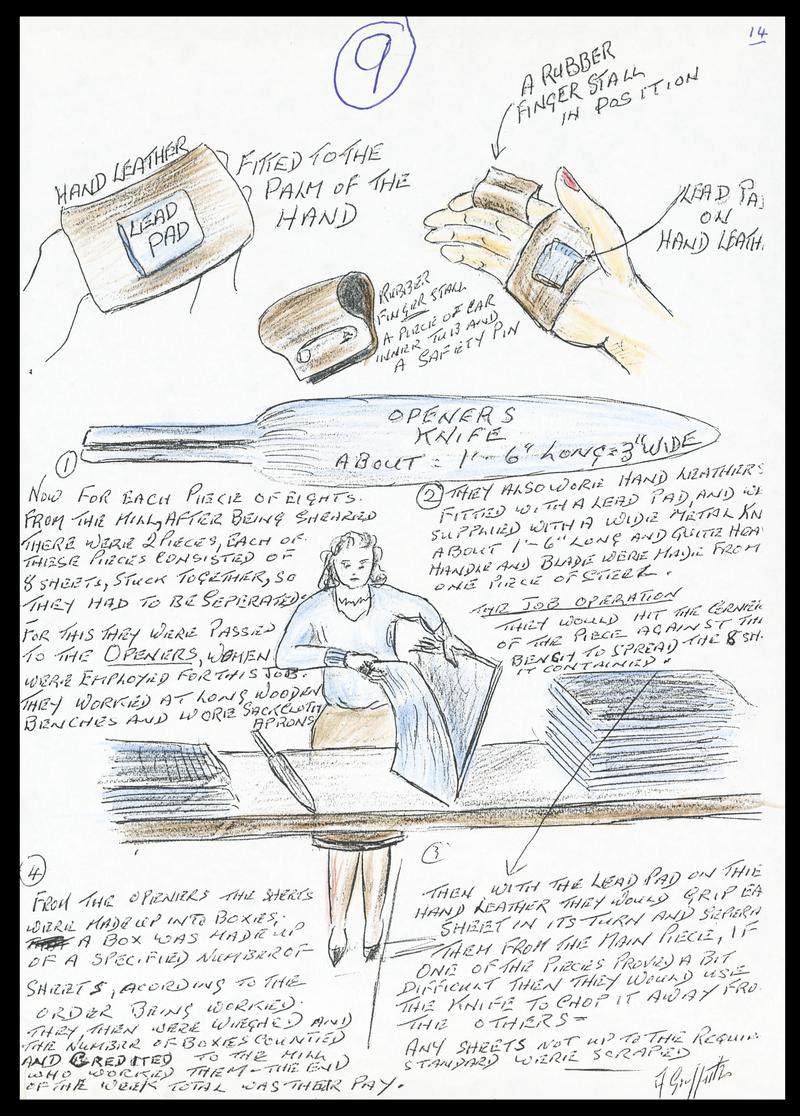 9
14
A RUBBER
FINGER STALL
IN POSITION
HAND LEATHER
LEAD
PAD
FITTED TO THE
PALM OF THE
HAND
LEAD PA
ON
HAND LEATH
RUBBER
FINGER STALL
A PIECE OF CAR
INNER TUB AND
A SAFETY PIN
OPENERS
KNIFE
ABOUT = 1'-6" LONG = 3" WIDE
1
NOW FOR EACH PIECIE OF EIGHTS.
FROM THE MILL, AFTER BEING SHEARED
THERE WERE 2 PIECES, EACH OF
THESE PIECES CONSISTED OF
8 SHEETS, STUCK TOGETHER, SO
THEY HAD TO BE SEPERATED
FOR THIS THEY WERE PASSED
TO THE OPENERS, WOMEN
WERE EMPLOYED FOR THIS JOB.
THEY WORKED AT LONG WOODEN
BENCHES AND WORE SACKCLOTH
APRONS
2
THEY ALSO WORE HAND LEATHERS
FITTED WITH A LEAD PAD, AND WE
SUPPLIED WITH A WIDE METAL KN
ABOUT 1'-6" LONG AND QUITE HEA
HANDLE AND BLADE WERE MADE FROM
ONE PIECE OF STEEL.
THE JOB OPERATION
THEY WOULD HIT THE CORNER
OF THE PIECE AGAINST TH
BENCH TO SPREAD THE 8 SH
IT CONTAINED.
3
THEN WITH THE LEAD PAD ON THE
HAND LEATHER THEY WOULD GRIP EA
SHEET IN ITS TURN AND SEPERA
THEM FROM THE MAIN PIECE, IF
ONE OF THE PIECES PROVED A BIT
DIFFICULT THEN THEY WOULD USE
THE KNIFE TO CHOP IT AWAY FRO
THE OTHERS =
ANY SHEETS NOT UP TO THE REQUIR
STANDARD WERE SCRAPED
F Griffiths
4
FROM THE OPENERS THE SHEETS
WERE MADE UP INTO BOXES,
A BOX WAS MADE UP
OF A SPECIFIED NUMBER OF
SHEETS, ACORDING TO THE
ORDER BEING WORKED.
THEY THEN WERE WIEGHED AND
THE NUMBER OF BOXES COUNTED
AND CREDITED TO THE MILL
WHO WORKED THEM - THE END
OF THE WEEK TOTAL WAS THEIR PAY.